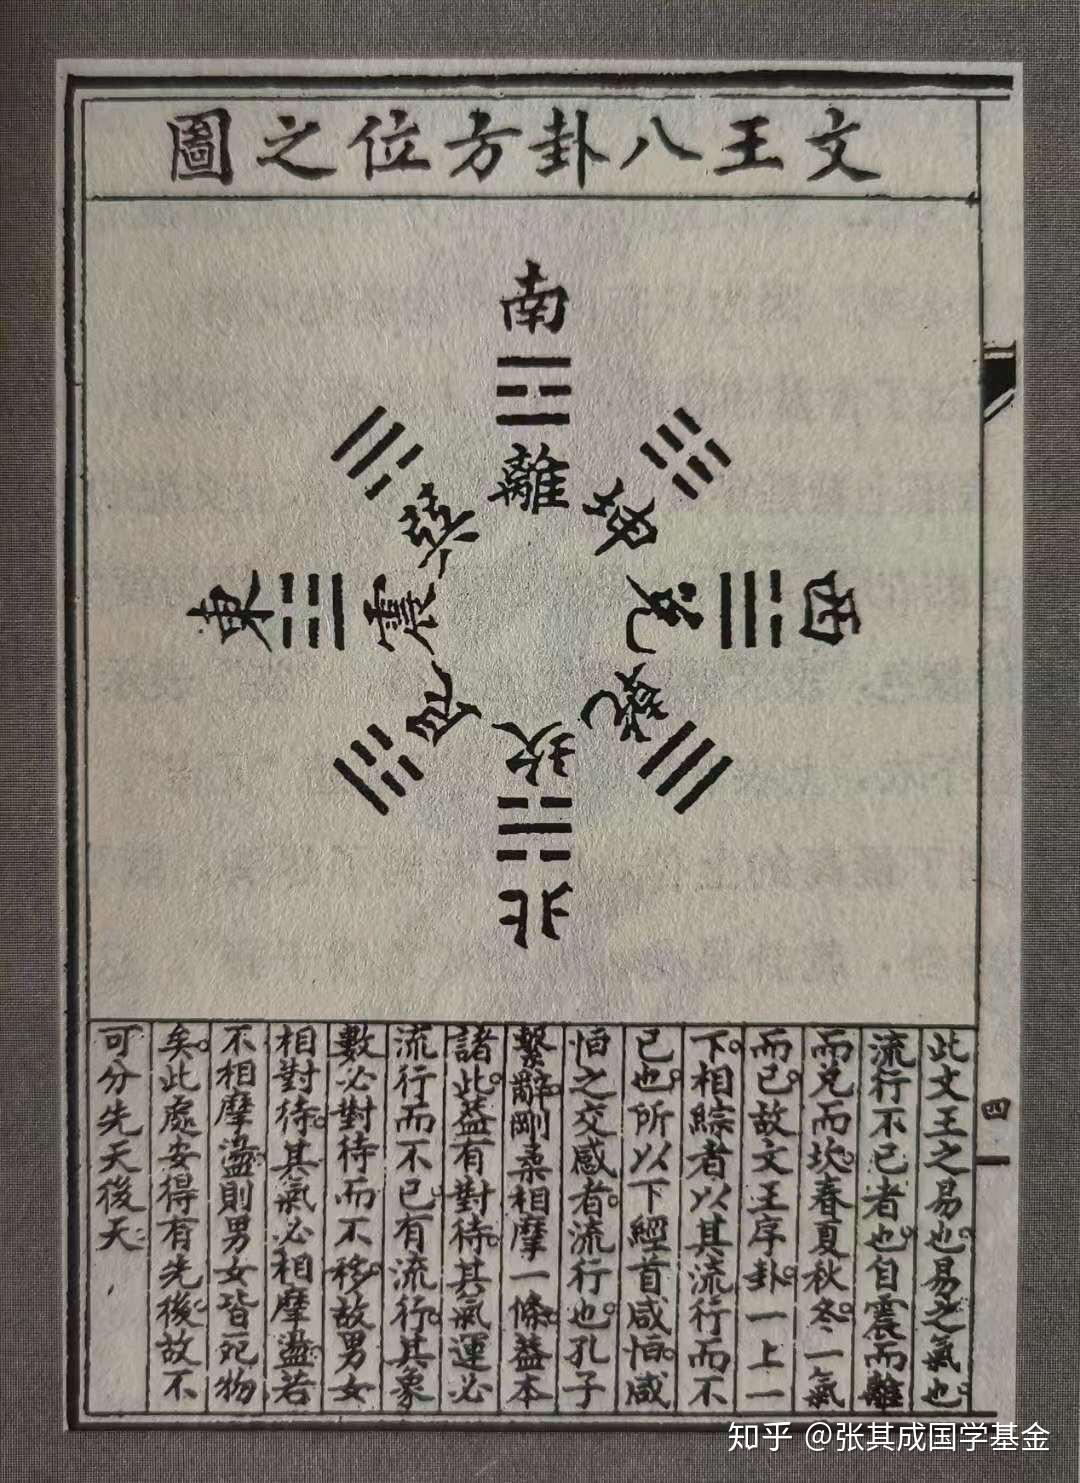 文王八卦方位之圖
南
離
坤
西
兌
乾
北
坎
艮
東
震
巽
四
此文王之易也。易之氣也。
流行不已者也。自震而離
而兌而坎。春夏秋冬。一氣
而已。故文王序卦。一上一
下。相綜者。以其流行而不
已也。所以下經首咸恒。咸
恒之交感者。流行也。孔子
繫辭。剛柔相摩一條。蓋本
諸此。蓋有對待。其氣運必
流行而不已。有流行。其象
數必對待而不移。故男女
相對待。其氣必相摩盪。若
不相摩盪。則男女皆死物
矣。此處安得有先後。故不
可分先天後天。
知乎 @张其成国学基金